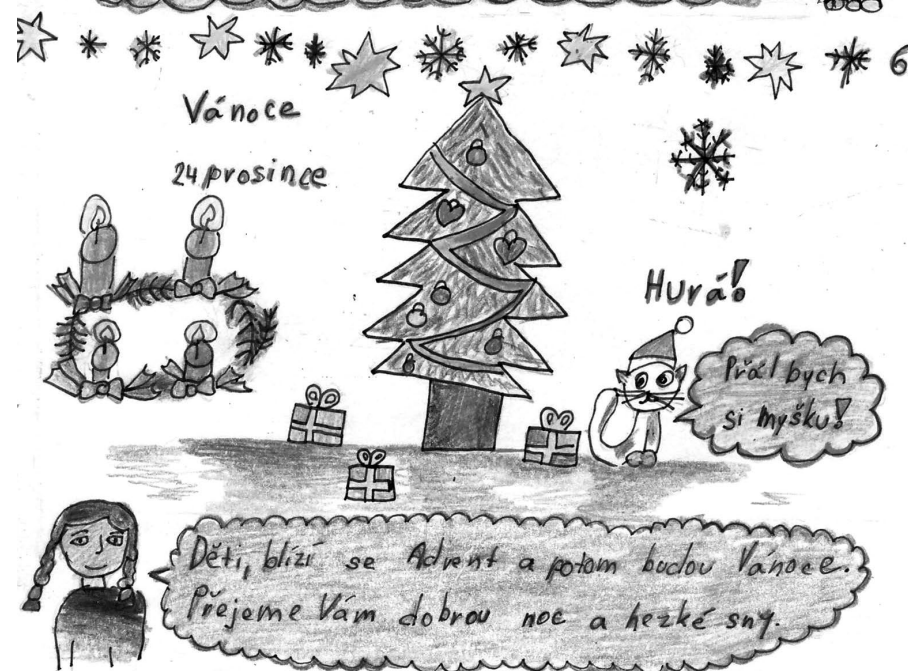 6
Vánoce
24 prosince
Hurá!
Přál bych
si myšku!
Děti, blízí se Advent a potom budou Vánoce.
Přejeme Vám dobrou noc a hezké sny.